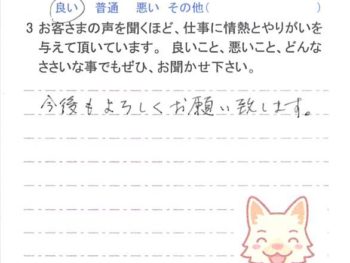 良い 普通 悪い その他( )
3 お客さまの声を聞くほど、仕事に情熱とやりがいを
与えて頂いています。 良いこと、悪いこと、どんな
ささいな事でもぜひ、お聞かせ下さい。
今後もよろしくお願い致します。